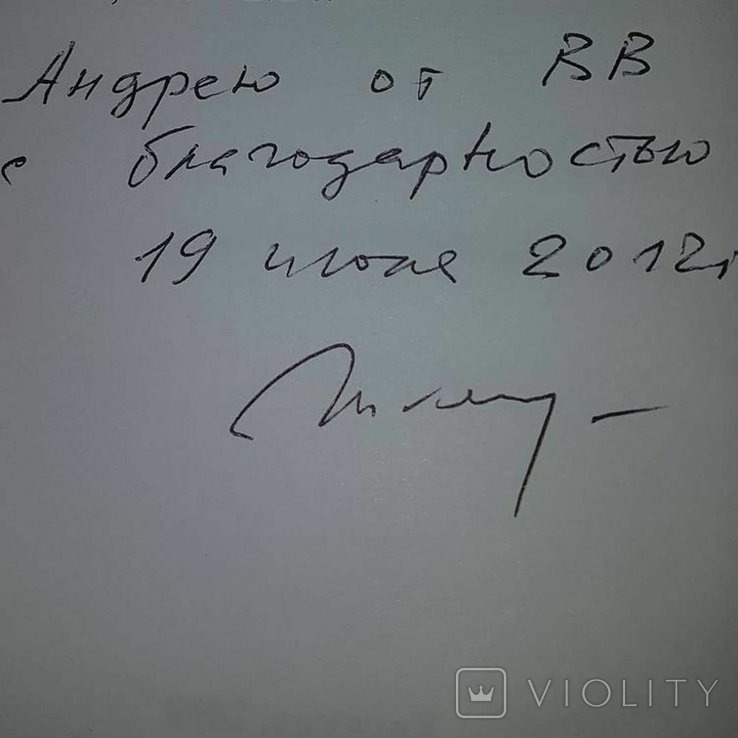 Андрею от ВВ
с благодарностью
19 июня 2012г
VIOLITY